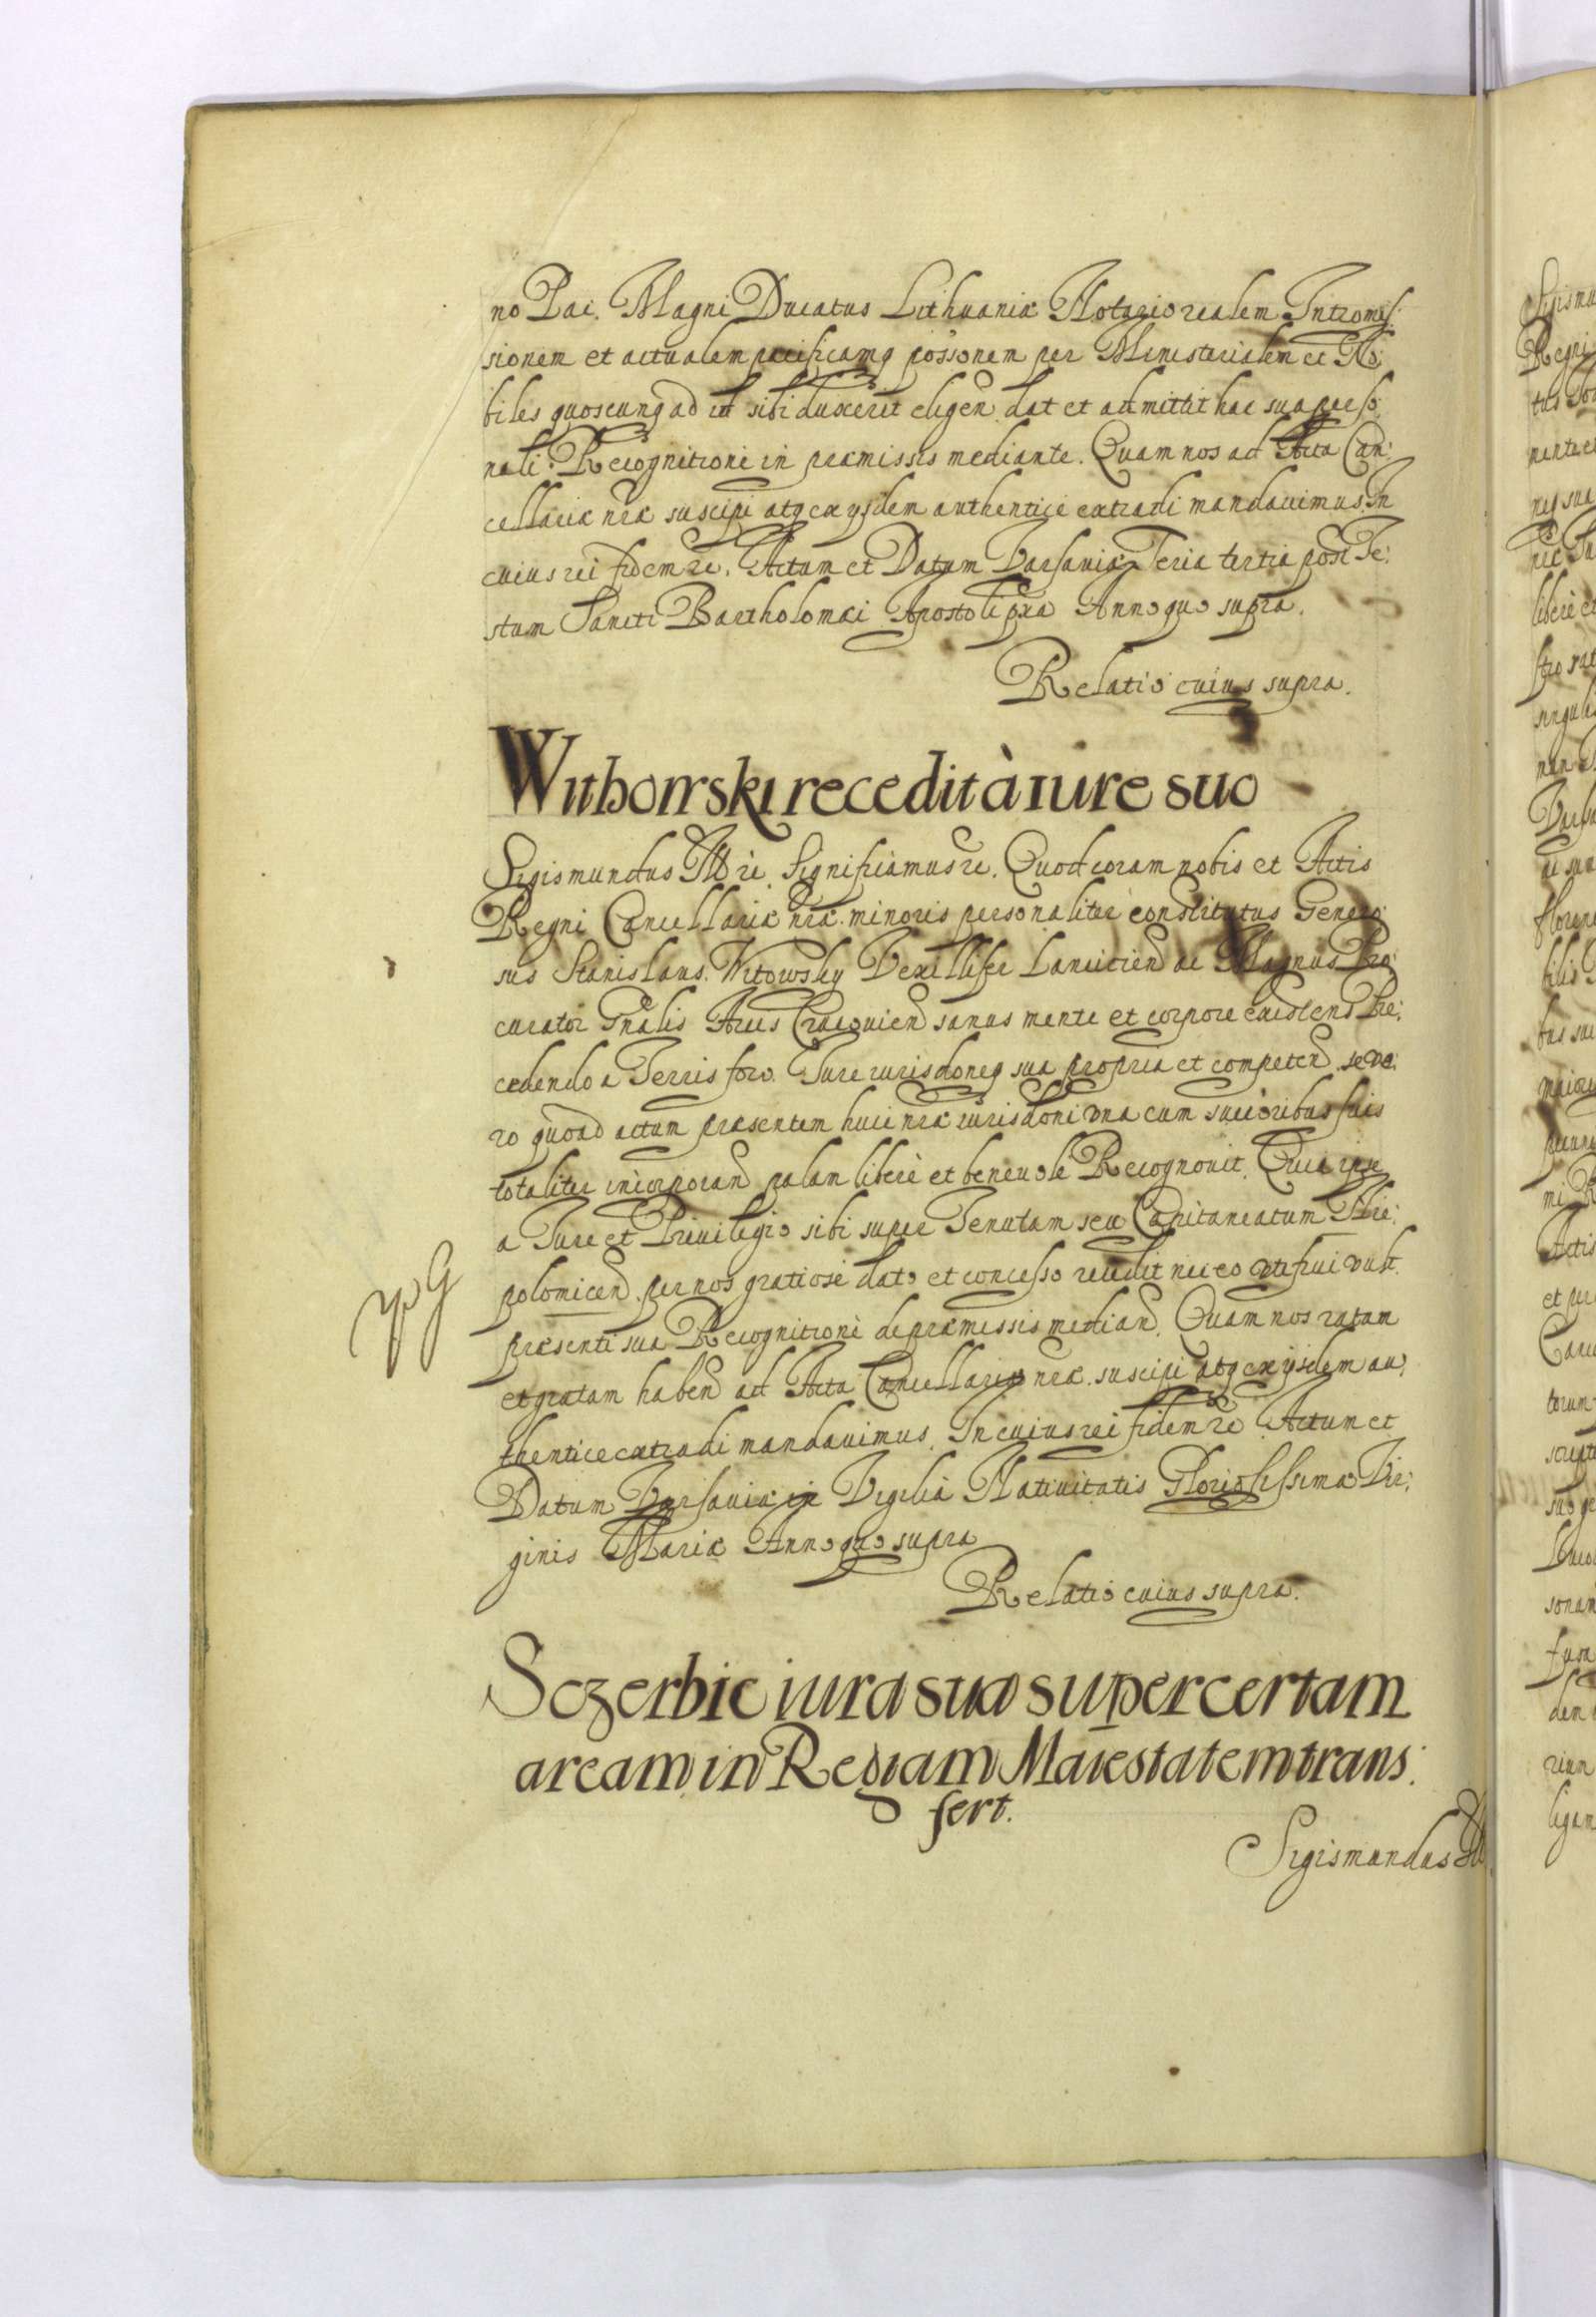 no Pac. Magni Ducatus Lithuaniæ Notario realem Intromis:
sionem et actualem pacificamq possonem per Ministerialem et No:
biles quoscunq ad id sibi duxerit eligen. dat et admittit hac sua perso:
nali Recognitione in præmissis mediante. Quam nos ad Acta Can:
cellariæ nræ suscipi atq ex ijsdem authentice extradi mandauimus. In
cuius rei fidem &c. Actum et Datum Varsauiæ Feria tertia post Fe:
stum Sancti Bartholomæi Apostoli pxa Anno quo supra.
Relatio cuius supra.
Withowski recedit à iure suo
Sigismundus III &c. Significamus &c. Quod coram nobis et Actis
Regni Cancellariæ nræ. minoris personaliter constitutus Genero:
sus Stanislaus. Witowsky Vexillifer Lanciciens ac Magnus Pro:
curator Gnalis Arcis Cracouien sanus mente et corpore existens Re:
cedendo a Terris foro. Iure iurisdoneq sua propria et competen se ve:
ro quoad actum præsentem huic nræ iurisdoni vna cum succoribus suis
totaliter incorporand palam libere et beneuole Recognouit. Quia ipse
a Iure et Priuilegio sibi super Tenutam seu Capitaneatum Kre:
polomicen. per nos gratiose dato et concesso recedit nec eo vti frui vult.
yp G
præsenti sua Recognitione de præmissis median. Quam nos ratam
et gratam haben ad Acta Cancellariæ nræ. suscipi atq ex ijsdem au:
thentice extradi mandauimus. In cuius rei fidem &c Actum et
Datum Varsauiæ in Vigilia Natiuitatis Gloriosissimæ Vir:
ginis Mariæ Anno quo supra
Relatio cuius supra.
Sczerbic iura sua super certam
aream in Regiam Maiestatem trans:
fert.
Sigismundus III